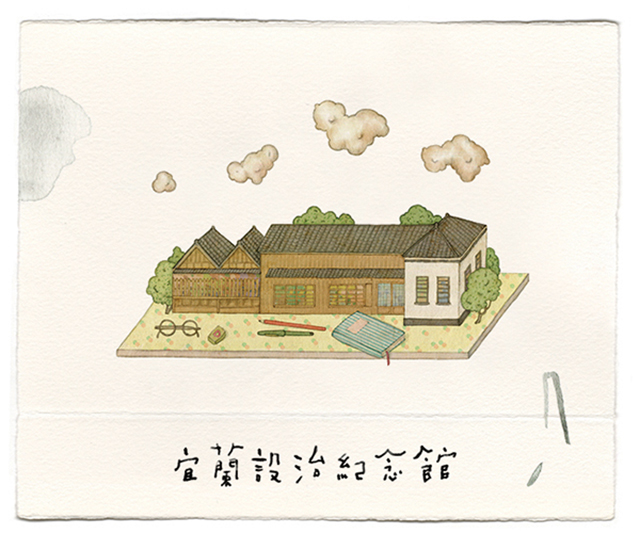 宜蘭設治紀念館